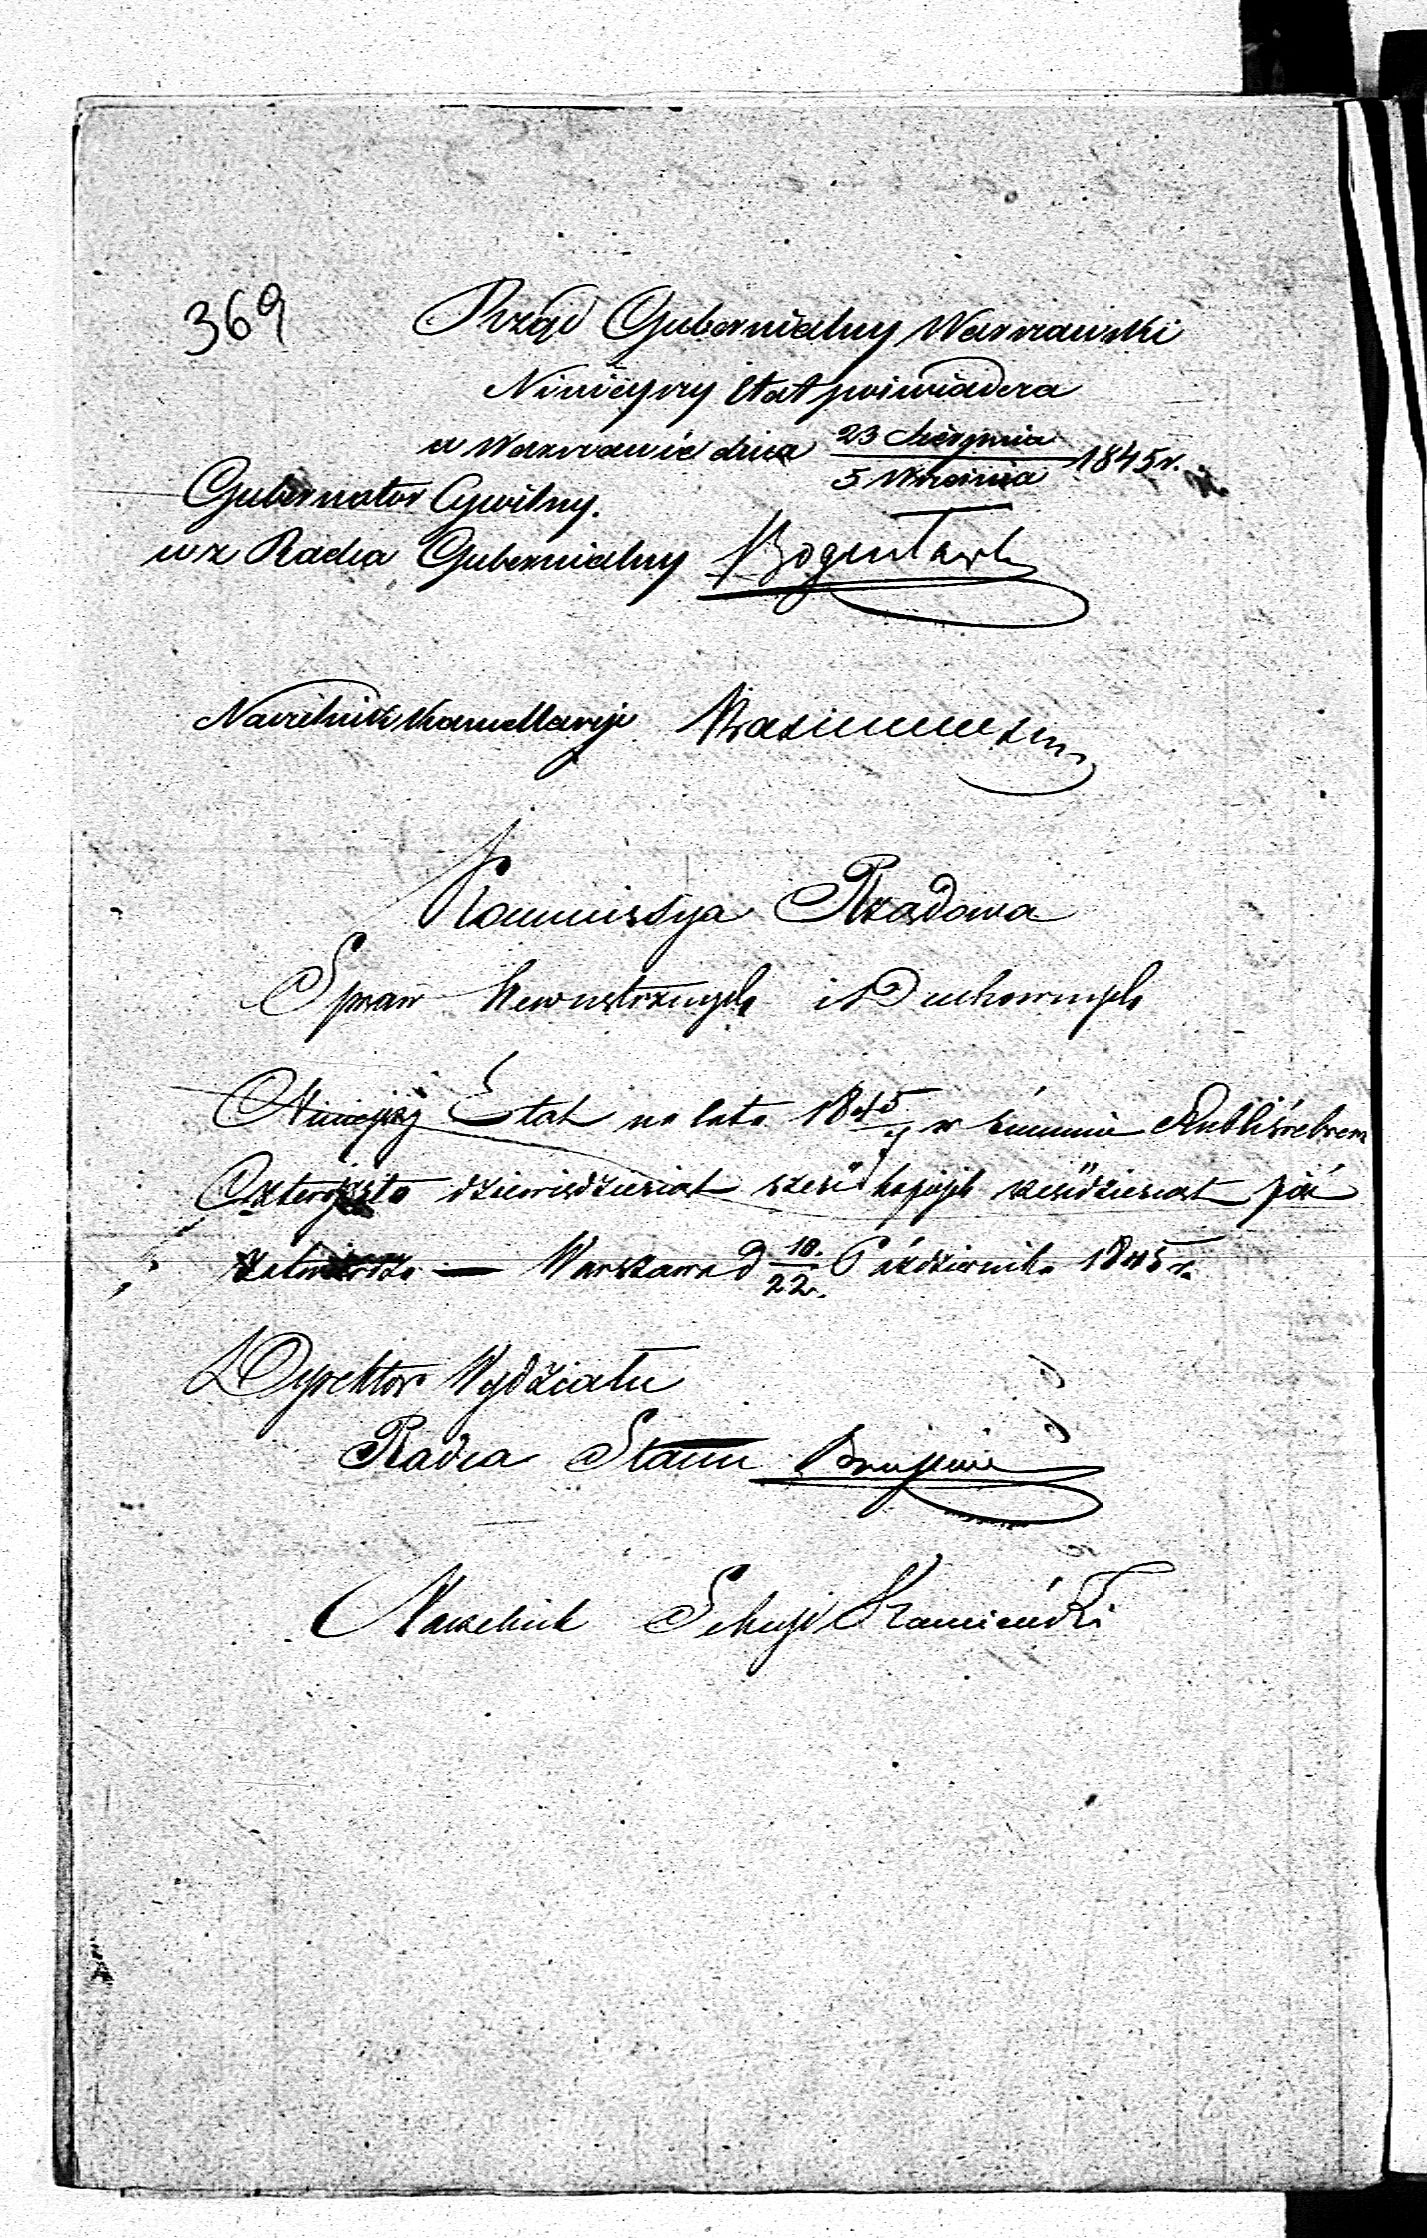 369
Rząd Gubernialny Warszawski
Niniejszy Etat poświadcza
w Warszawie dnia 23 Sierpnia / 5 Września 1845 r.
Gubernator Cywilny.
wz Radca Gubernialny
Naczelnik Kancellaryi
Kommissya Rządowa
Spraw Wewnętrznych i Duchownych
Niniejszy Etat na lata 1845/7 w summie Rubli śrebrem
Czterysta dziewiędziesiąt sześć kopiejek sześdziesiąt pięć
zatwierdza — Warszawa d 10/22 Października 1845 r.
Dyrektor Wydziału
Radca Stanu
Naczelnik Sekcyi Kamieński